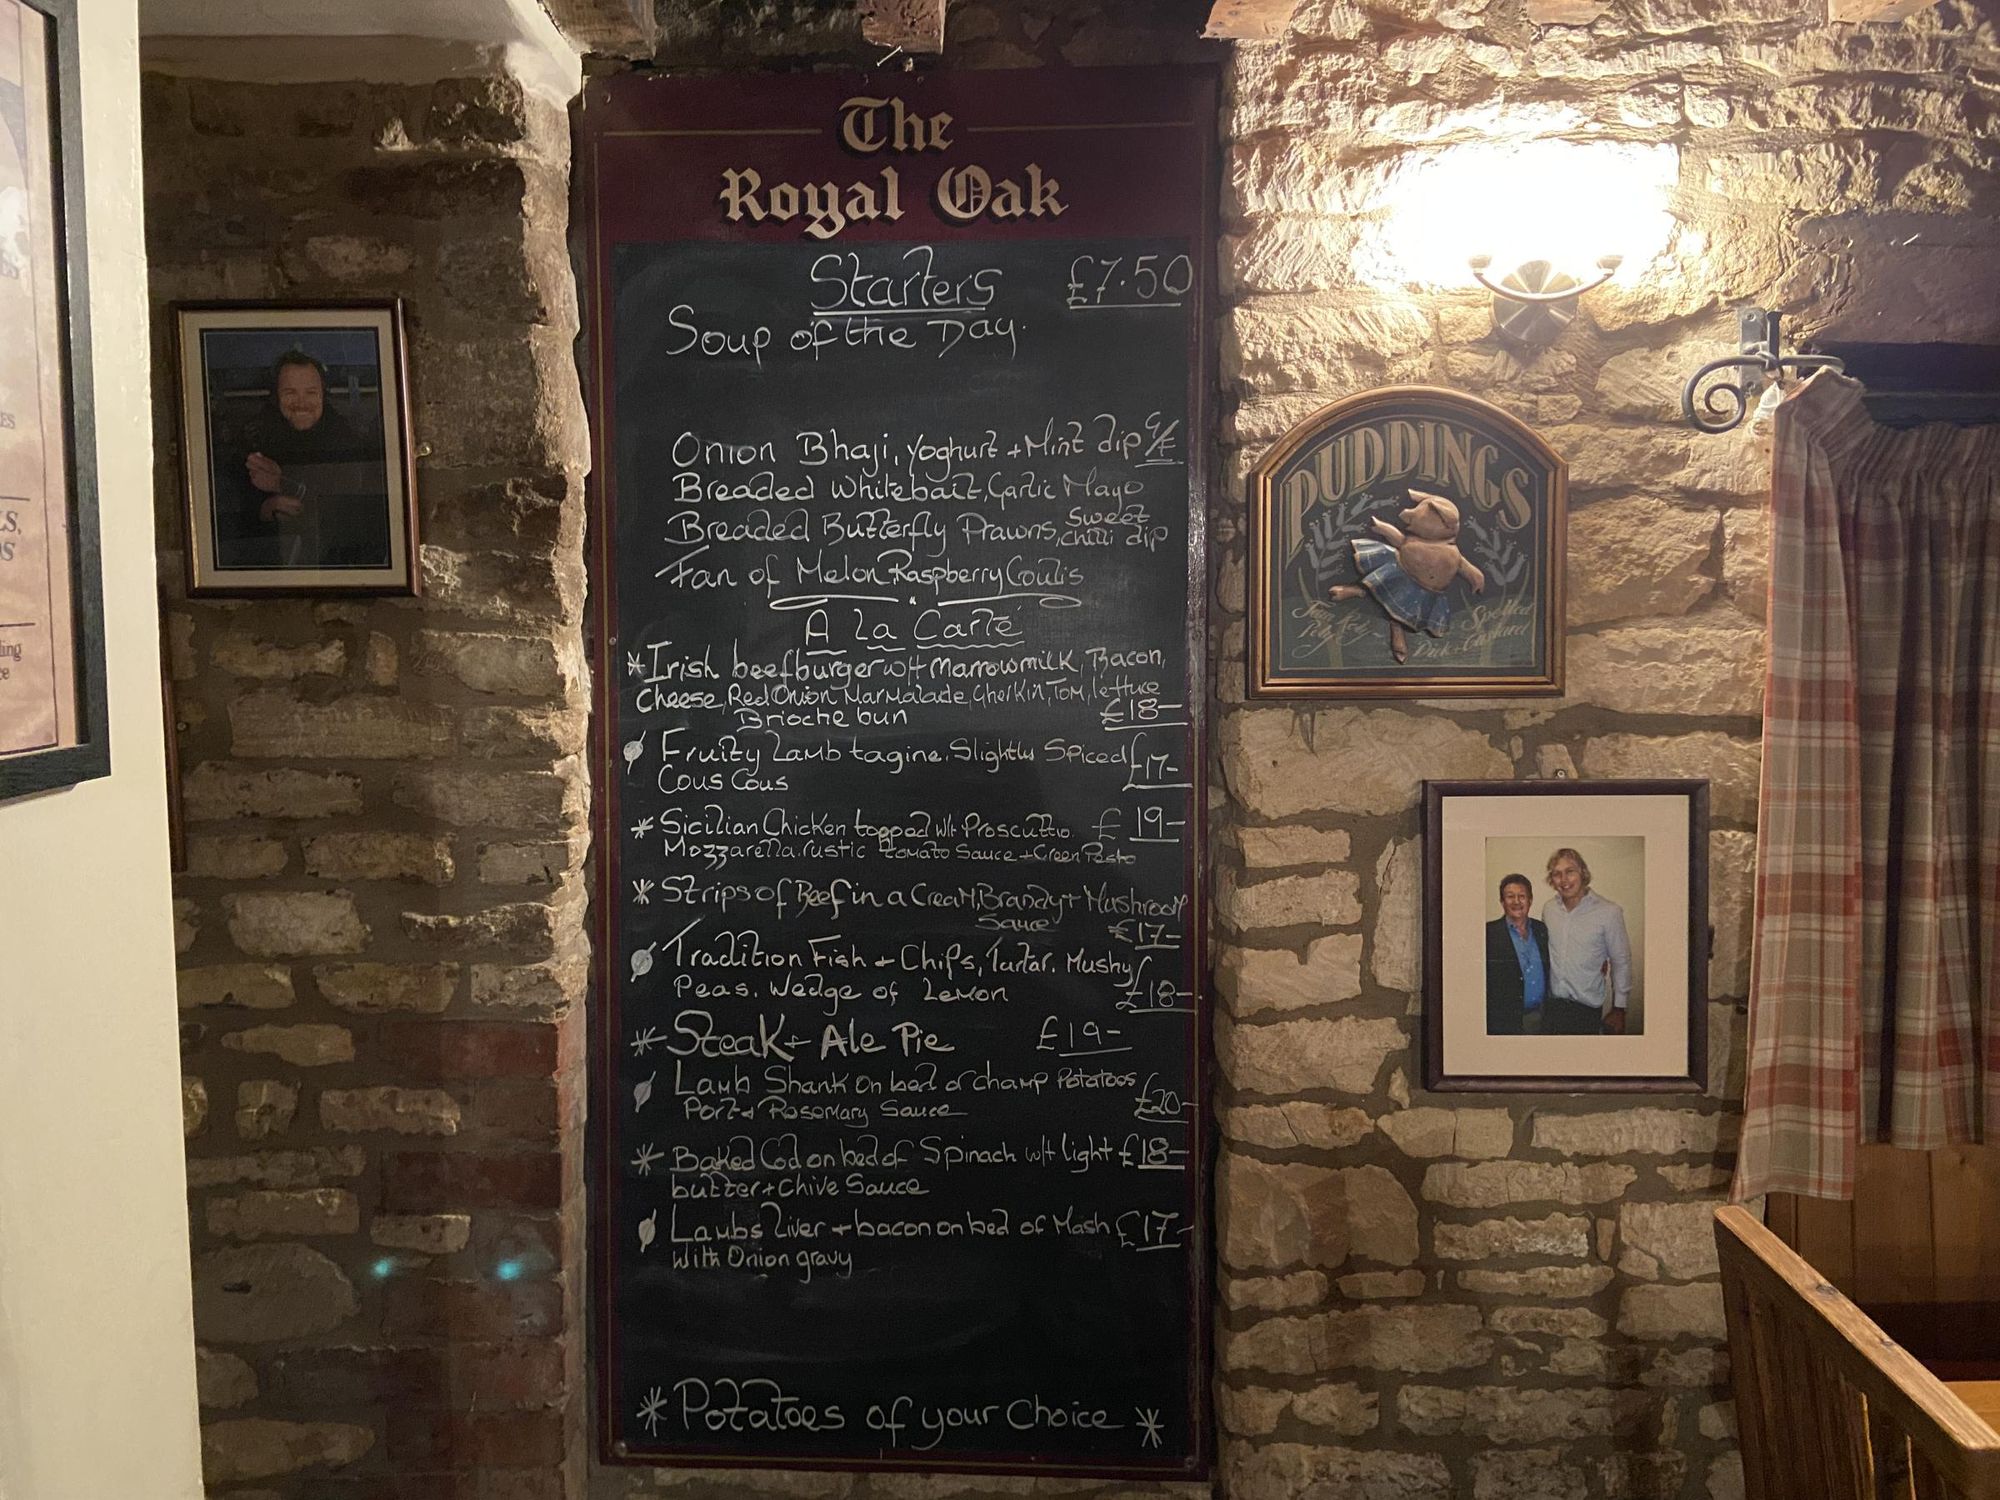 The
Royal Oak
Starters £7.50
Soup of the Day.
Onion Bhaji, Yoghurt + Mint dip G/F
Breaded Whitebait, Garlic Mayo
Breaded Butterfly Prawns, Sweet chilli dip
Fan of Melon Raspberry Coulis
A La Carte
* Irish beefburger w/t Marrowmilk, Bacon,
Cheese, Red Onion Marmalade, Gherkin, Tom, lettuce
Brioche bun £18-
Fruity Lamb tagine. Slightly Spiced
Cous Cous £17-
* Sicilian Chicken topped w/t Proscuttio £19-
Mozzarella. rustic tomato Sauce + Green Pesto
* Strips of Beef in a Cream, Brandy + Mushroom
Sauce £17-
Tradition Fish + Chips, Tartar. Mushy
Peas. Wedge of Lemon £18-
* Steak + Ale Pie £19-
Lamb Shank on bed of champ Potatoes
Port + Rosemary Sauce £20-
* Baked Cod on bed of Spinach w/t light £18-
butter + Chive Sauce
Lambs Liver + bacon on bed of Mash £17-
With Onion gravy
* Potatoes of your Choice *
PUDDINGS
Spotted
Dick & Custard